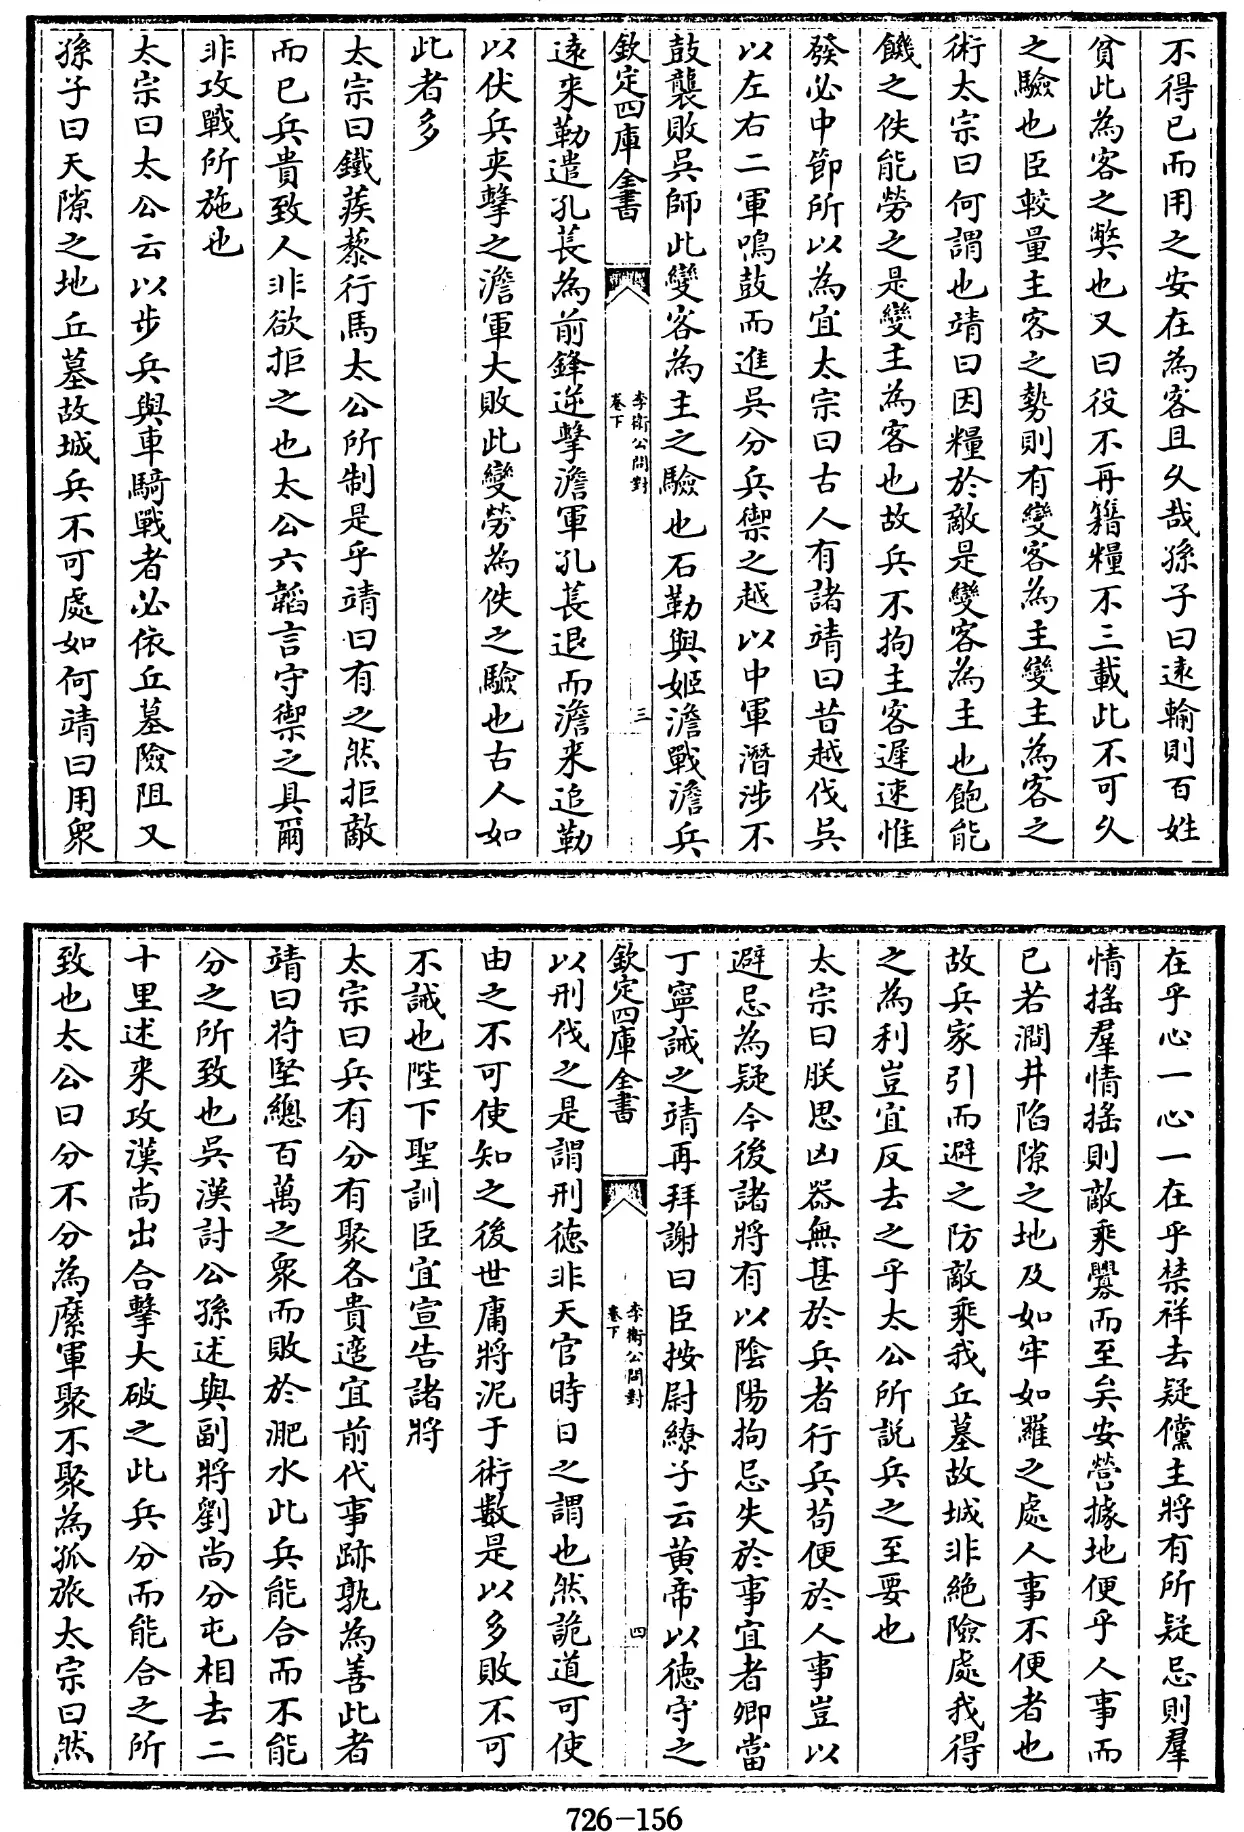 不得已而用之安在為客且久哉孫子曰遠輸則百姓
貧此為客之弊也又曰役不再籍糧不三載此不可久
之驗也臣較量主客之勢則有變客為主變主為客之
術太宗曰何謂也靖曰因糧於敵是變客為主也飽能
饑之佚能勞之是變主為客也故兵不拘主客遲速惟
發必中節所以為宜太宗曰古人有諸靖曰昔越伐吳
以左右二軍鳴鼓而進吳分兵禦之越以中軍潛涉不
鼓襲敗吳師此變客為主之驗也石勒與姬澹戰澹兵
欽定四庫全書
李衛公問對
卷下
三
遠來勒遣孔萇為前鋒逆擊澹軍孔萇退而澹来追勒
以伏兵夾擊之澹軍大敗此變勞為佚之驗也古人如
此者多
太宗曰鐵蒺藜行馬太公所制是乎靖曰有之然拒敵
而已兵貴致人非欲拒之也太公六韜言守禦之具爾
非攻戰所施也
太宗曰太公云以步兵與車騎戰者必依丘墓險阻又
孫子曰天隙之地丘墓故城兵不可處如何靖曰用衆
在乎心一心一在乎禁祥去疑儻主將有所疑忌則羣
情搖羣情搖則敵乘釁而至矣安營據地便乎人事而
已若澗井陷隙之地及如牢如羅之處人事不便者也
故兵家引而避之防敵乘我丘墓故城非絶險處我得
之為利豈宜反去之乎太公所説兵之至要也
太宗曰朕思凶器無甚於兵者行兵苟便於人事豈以
避忌為疑今後諸將有以陰陽拘忌失於事宜者卿當
丁寧誡之靖再拜謝曰臣按尉繚子云黄帝以德守之
欽定四庫全書
李衛公問對
卷下
四
以刑伐之是謂刑德非天官時日之謂也然詭道可使
由之不可使知之後世庸將泥于術數是以多敗不可
不誡也陛下聖訓臣宜宣告諸將
太宗曰兵有分有聚各貴適宜前代事跡孰為善此者
靖曰苻堅總百萬之衆而敗於淝水此兵能合而不能
分之所致也吳漢討公孫述與副將劉尚分屯相去二
十里述来攻漢尚出合擊大破之此兵分而能合之所
致也太公曰分不分為縻軍聚不聚為孤旅太宗曰然
726-156